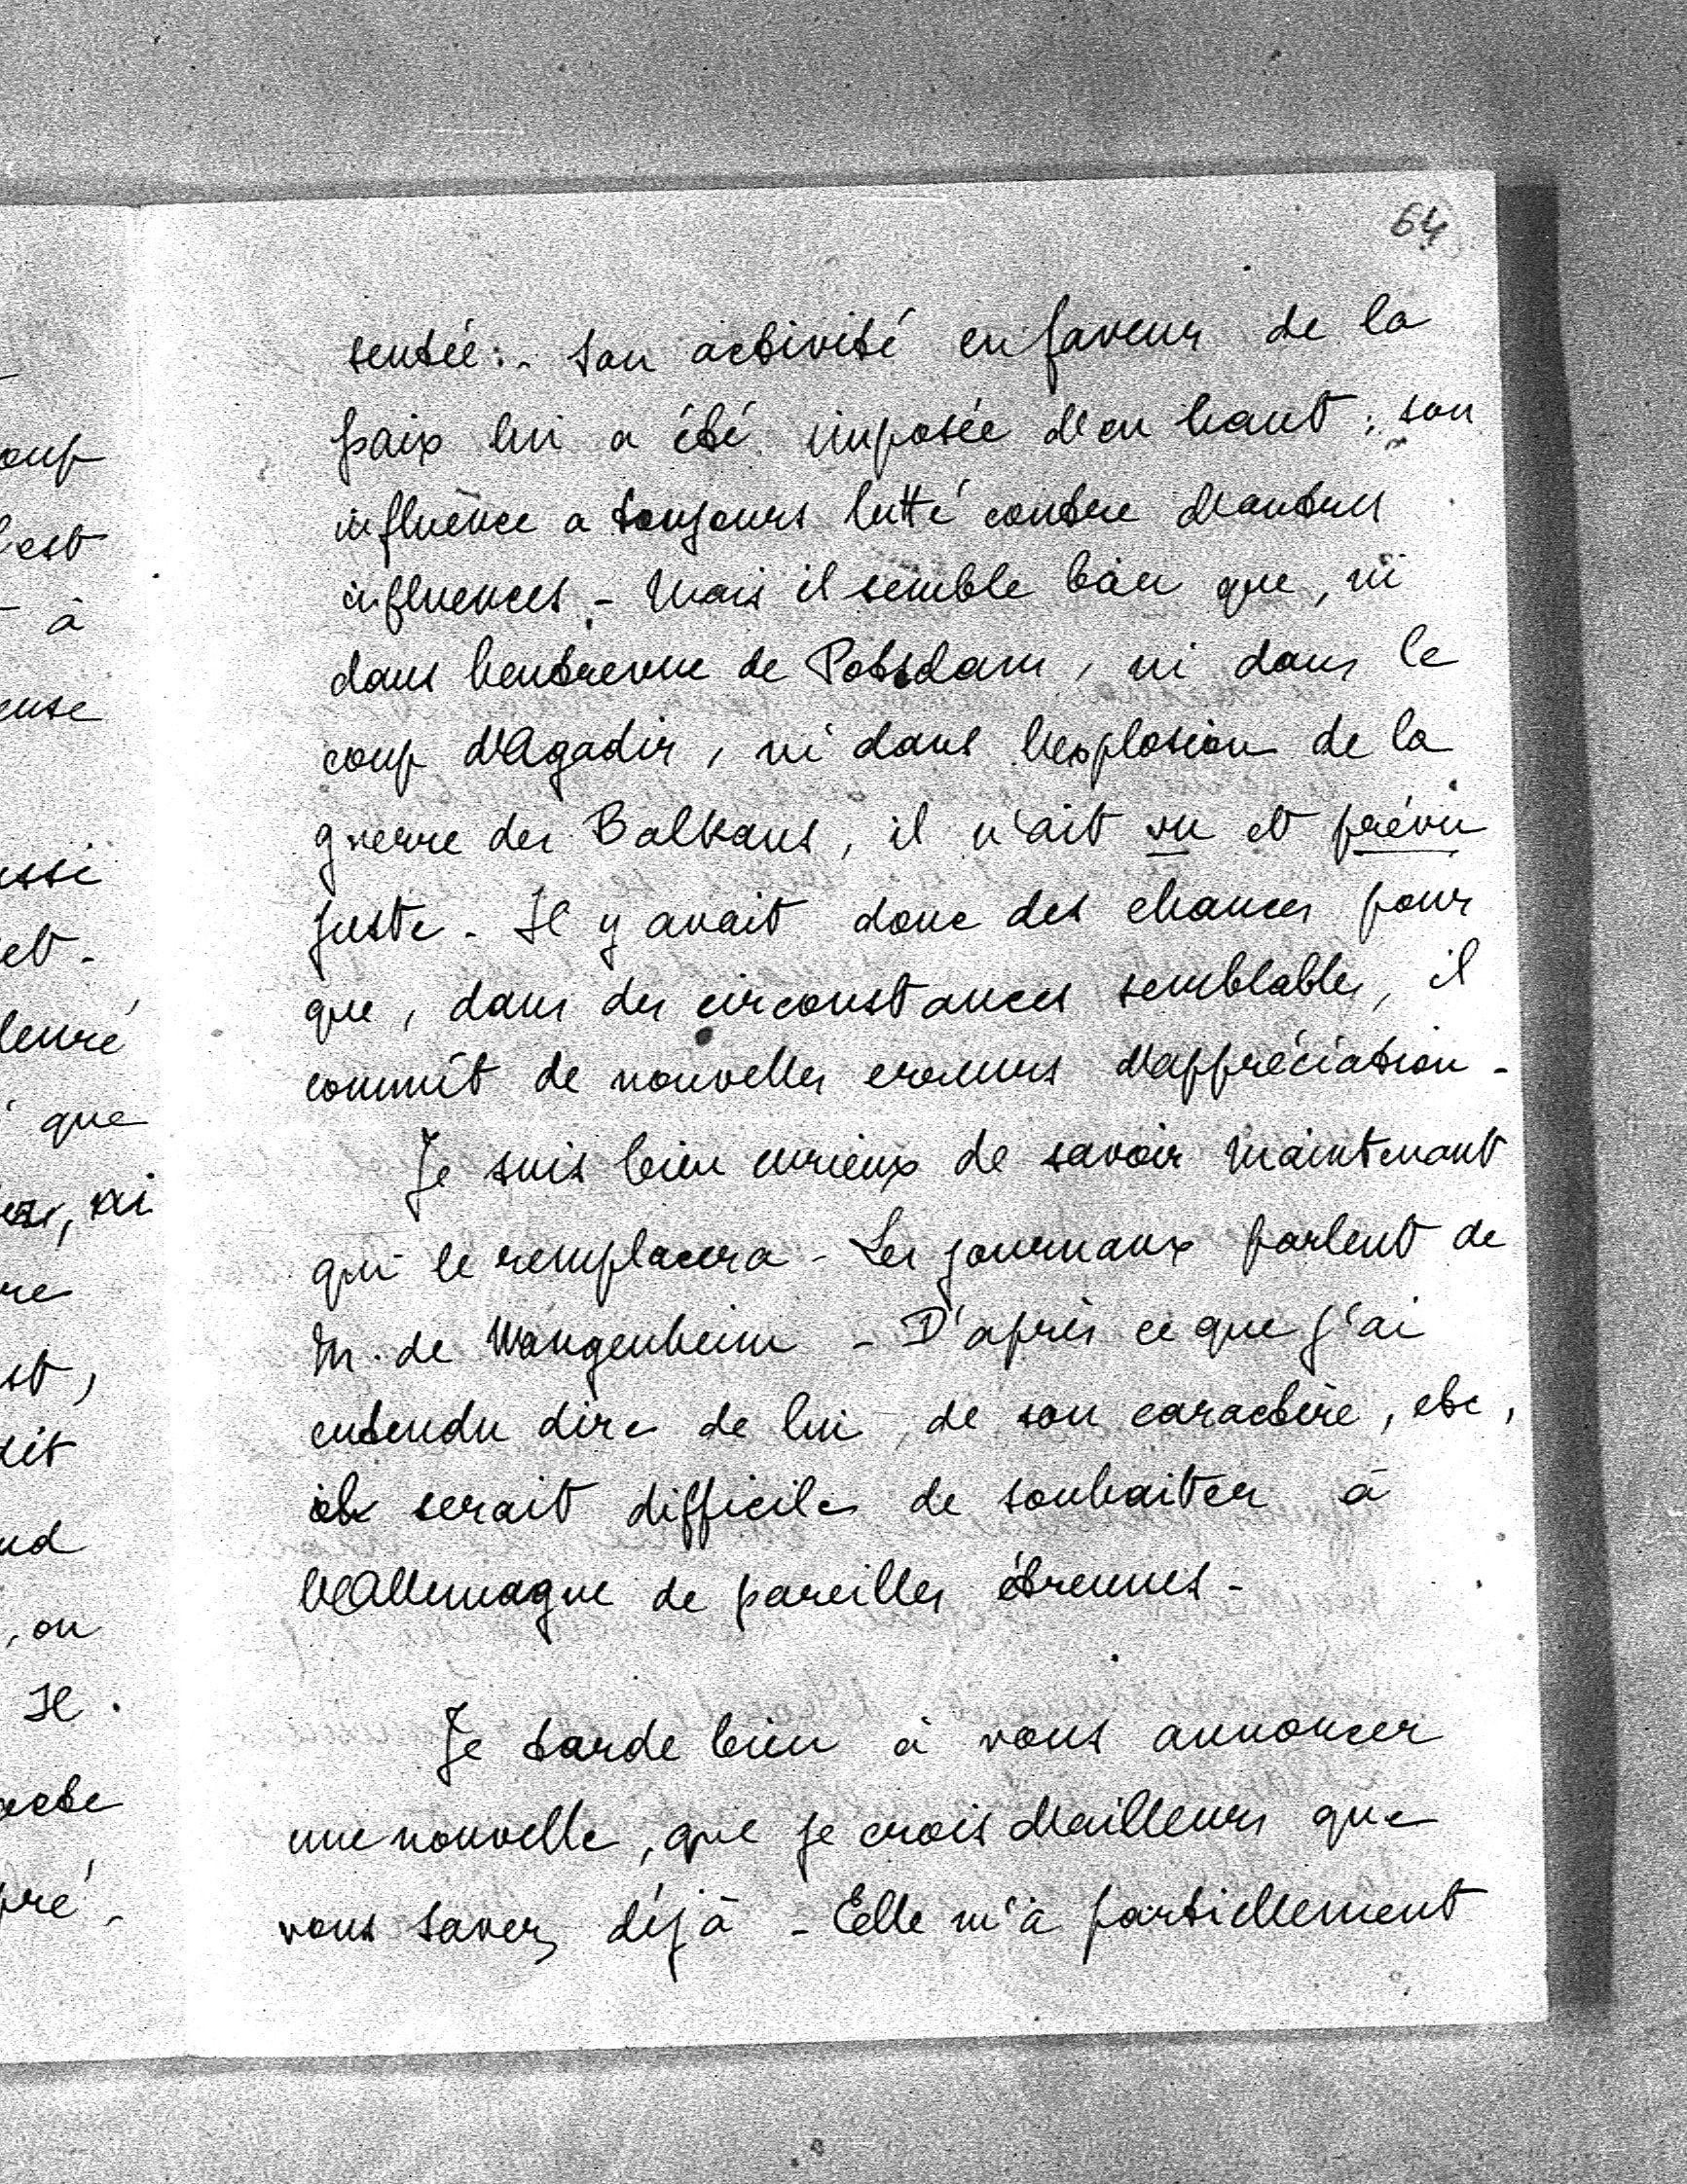 64
sentée :. Son activité en faveur de la
paix lui a été imposée d'en haut ; son
influence a toujours lutté contre d'autres
influences - Mais il semble bien que, ni
dans l'entrevue de Potsdam, ni dans le
coup d'Agadir, ni dans l'explosion de la
guerre des Balkans, il n'ait vu et prévu
juste - Il y avait donc des chances pour
que, dans des circonstances semblables, il
commît de nouvelles erreurs d'appréciation -
Je suis bien curieux de savoir maintenant
qui le remplacera - Les journaux parlent de
M. de Wangenheim - D'après ce que j'ai
entendu dire de lui, de son caractère, etc,
il serait difficile de souhaiter à
l'Allemagne de pareilles étrennes -
Je tarde bien à vous annoncer
une nouvelle, que je crois d'ailleurs que
vous savez déjà - Elle m'a partiellement
oup
est
à
euse
ussi
et -
leuré
que
ni
re
st,
dit
nd
, on
Il
acte
pré -